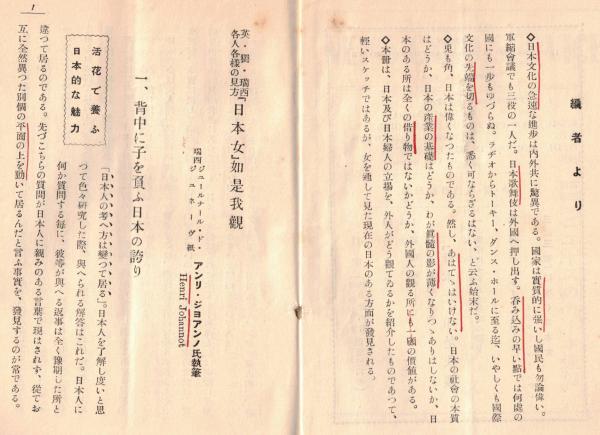 編者より
◇日本文化の急速な進歩は内外共に驚異である。國家は實質的に强いし國民も勿論偉い。
軍縮會議でも三役の一人だ。日本歌舞伎は外國へ押し出す。呑み込みの早い點では何處の
國にも一歩もゆづらぬ。ラヂオからトーキー、ダンス・ホールに至る迄、いやしくも國際
文化の先端を切るものは、悉く可ならざるはない、と云ふ始末だ。
◇兎も角、日本は偉くなつたものである。然し、あはてゝはいけない。日本の社會の本質
はどうか、日本の產業の基礎はどうか、わが眞髓の影が薄くなりつゝありはしないか、日
本のある所は全くの借り物ではないかどうか、外國人の觀る所にも一顧の價値がある。
◇本冊は、日本及び日本婦人の立場を、外人がどう觀てゐるかを紹介したものであつて、
輕いスケッチではあるが、女を通して見た現在の日本のある方面が發見される。
英・獨・瑞西
各人各樣の見方
「日本女」如是我觀
瑞西ジュールナール・ド・
ジュネーヴ紙
アンリ・ジョアンノ氏執筆
Henri Johannot
一、背中に子を負ふ日本の誇り
活花で養ふ
日本的な魅力
「日本人の考へ方は變つて居る」。日本人を了解し度いと思
つて色々研究した際、與へられる解答はこれだ。日本人に
何か質問する每に、彼等が與へる返事は全く豫期した所と
違つて居るのである。先づこちらの質問が日本人に親みのある言葉で現はされず、從てお
互に全然異つた別個の平面の上を動いて居るんだと言ふ事實を、發見するのが常である。
1